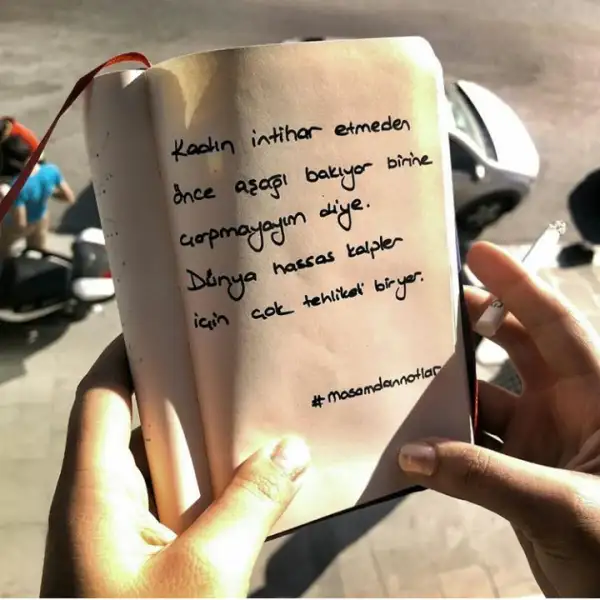 Kadın intihar etmeden
önce aşağı bakıyor birine
çarpmayayım diye.
Dünya hassas kalpler
için çok tehlikeli bir yer.
#masamdannotlar